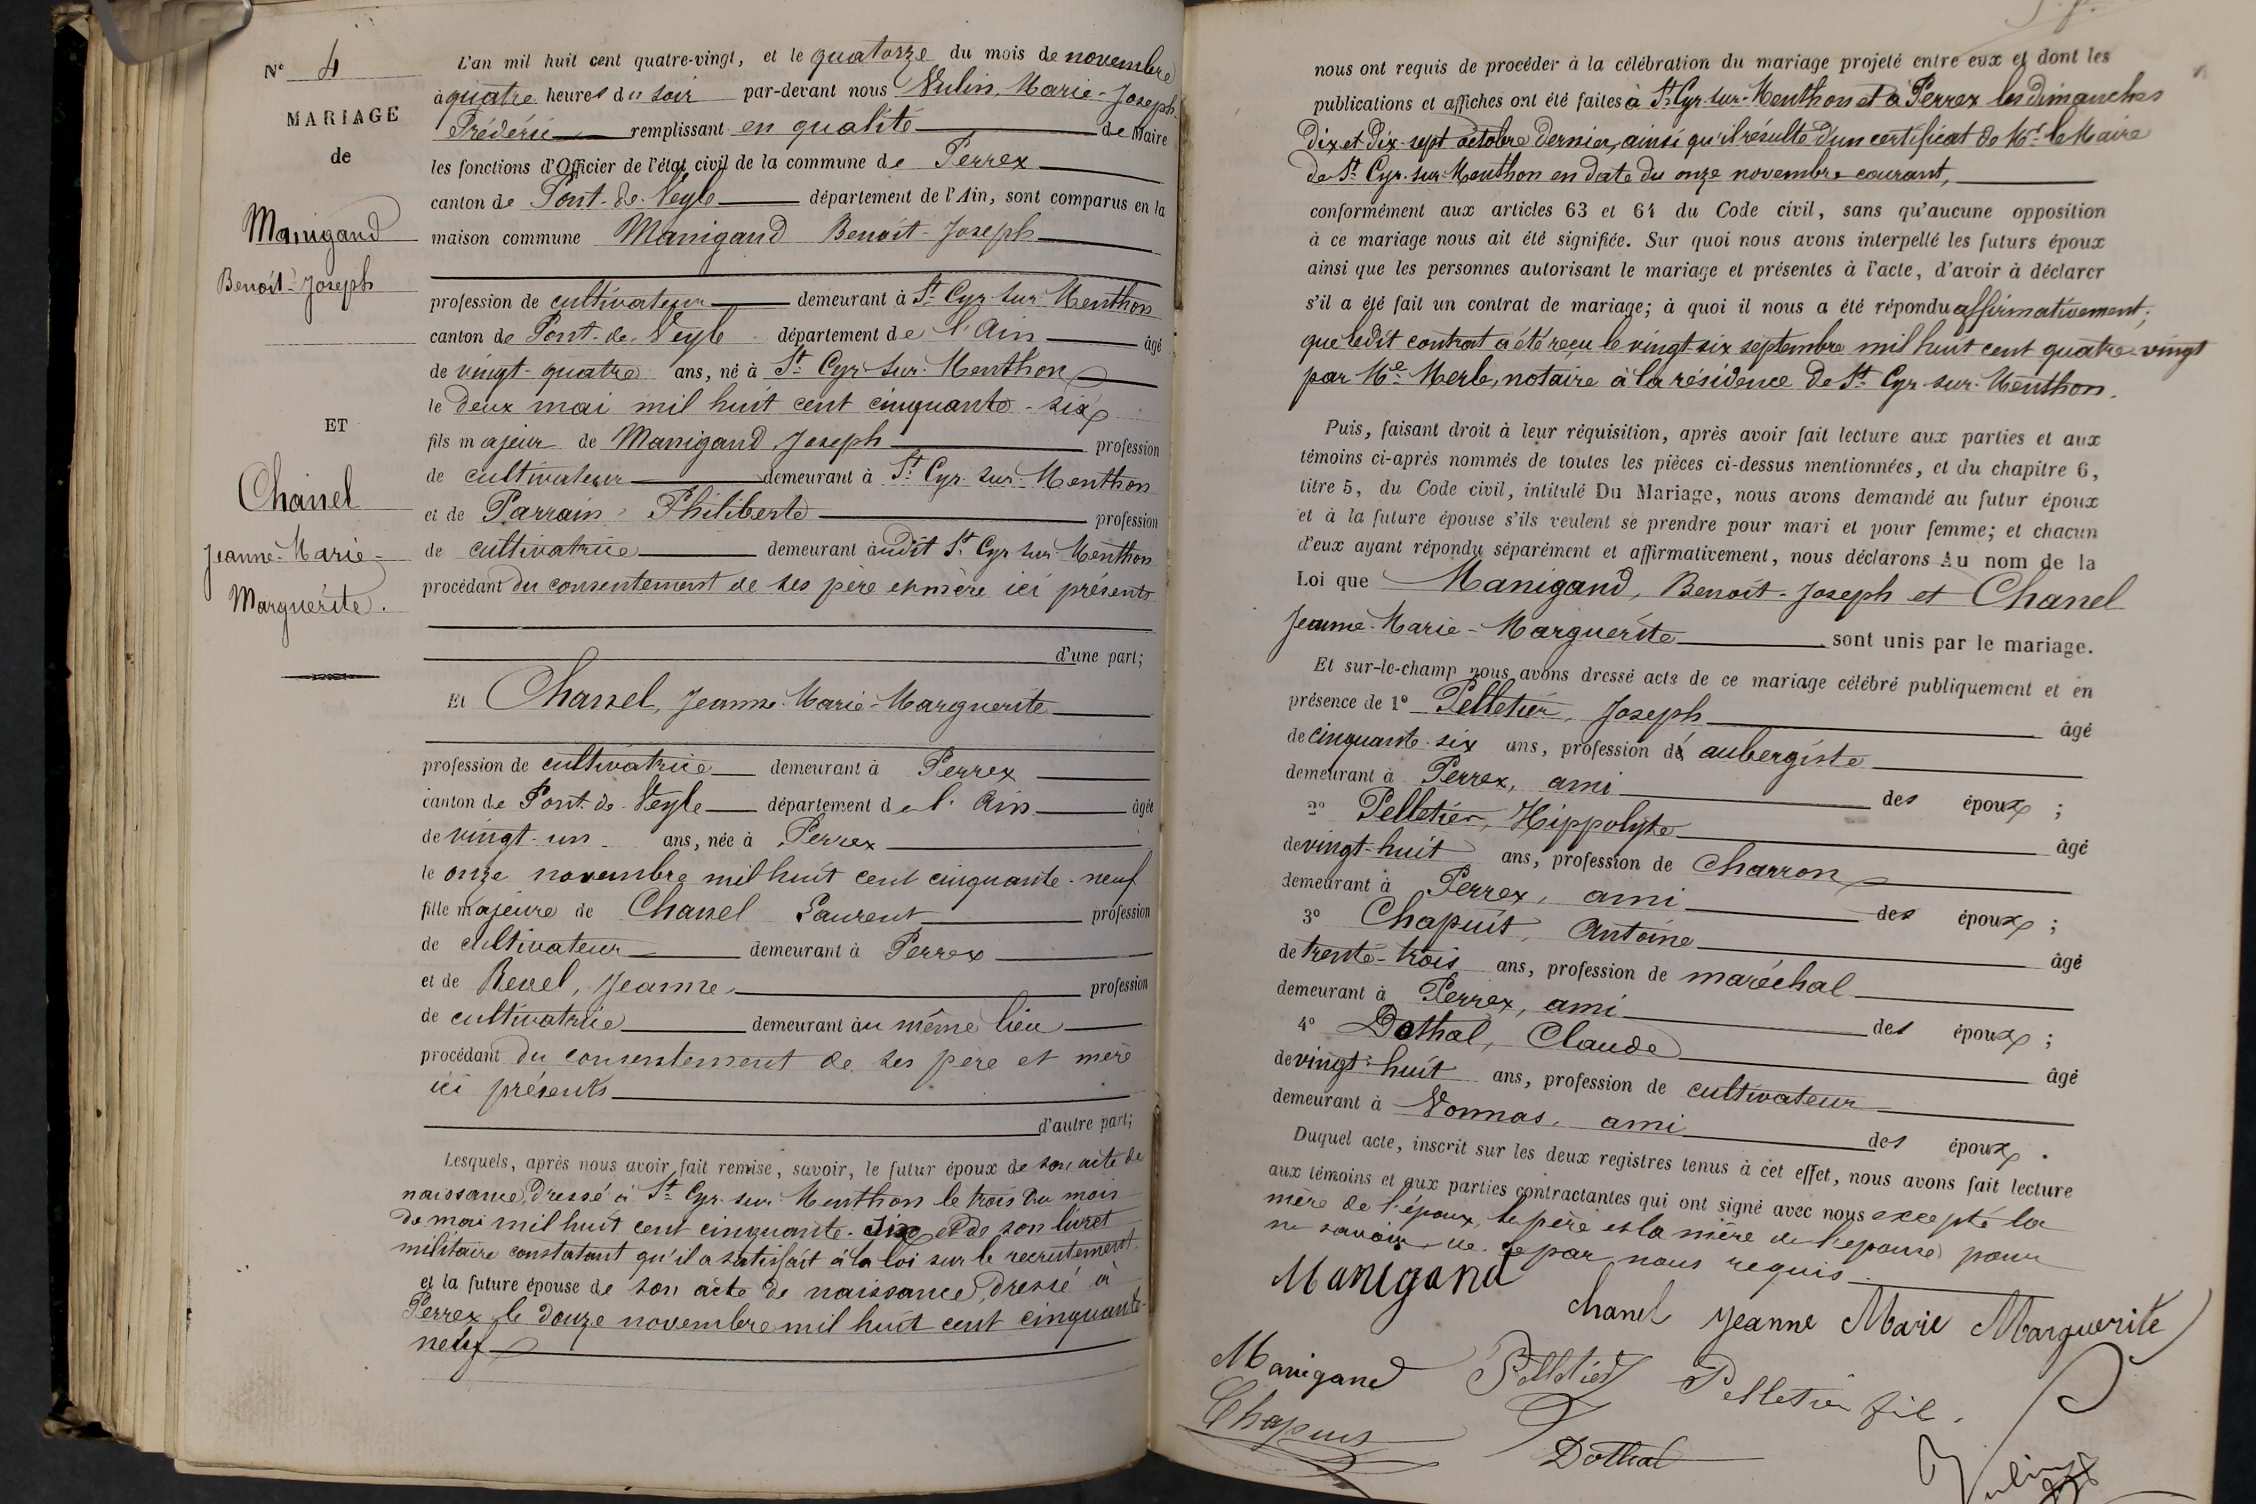 N° 4
MARIAGE
de
Manigand
Benoît-Joseph
ET
Chanel
Jeanne-Marie-
Marguerite.
L'an mil huit cent quatre-vingt, et le quatorze du mois de novembre
à quatre heures du soir par-devant nous Vulin, Marie-Joseph
Frédéric remplissant en qualité de Maire
les fonctions d'Officier de l'état civil de la commune de Perrex
canton de Pont-de-Veyle département de l'Ain, sont comparus en la
maison commune Manigand Benoît-Joseph
profession de cultivateur demeurant à St Cyr-sur-Menthon
canton de Pont-de-Veyle département de l'Ain âgé
de vingt-quatre ans, né à St Cyr-sur-Menthon
le deux mai mil huit cent cinquante-six
fils majeur de Manigand Joseph profession
de cultivateur demeurant à St Cyr-sur-Menthon
et de Parrain Philiberte profession
de cultivatrice demeurant àudit St Cyr-sur-Menthon
procédant du consentement de ses père et mère ici présents
d'une part;
Et Chanel, Jeanne-Marie-Marguerite
profession de cultivatrice demeurant à Perrex
canton de Pont-de-Veyle département de l'Ain âgée
de vingt-un ans, née à Perrex
le onze novembre mil huit cent cinquante-neuf
fille majeure de Chanel Laurent profession
de cultivateur demeurant à Perrex
et de Revel, Jeanne, profession
de cultivatrice demeurant àu même lieu
procédant du consentement de ses père et mère
ici présents
d'autre part;
Lesquels, après nous avoir fait remise, savoir, le futur époux de son acte de
naissance, dressé à St Cyr-sur-Menthon le trois du mois
de mai mil huit cent cinquante-six et de son livret
militaire constatant qu'il a satisfait à la loi sur le recrutement.
et la future épouse de son acte de naissance, dressé à
Perrex le douze novembre mil huit cent cinquante-
neuf
nous ont requis de procéder à la célébration du mariage projeté entre eux et dont les
publications et affiches ont été faites à St Cyr-sur-Menthon et à Perrex les dimanches
dix et dix-sept octobre dernier, ainsi qu'il résulte d'un certificat de Mr le Maire
de St Cyr-sur-Menthon en date du onze novembre courant,
conformément aux articles 63 et 64 du Code civil, sans qu'aucune opposition
à ce mariage nous ait été signifiée. Sur quoi nous avons interpellé les futurs époux
ainsi que les personnes autorisant le mariage et présentes à l'acte, d'avoir à déclarer
s'il a été fait un contrat de mariage; à quoi il nous a été répondu affirmativement;
que ledit contrat a été reçu le vingt-six septembre mil huit cent quatre-vingt
par Me Merle, notaire à la résidence de St Cyr-sur-Menthon.
Puis, faisant droit à leur réquisition, après avoir fait lecture aux parties et aux
témoins ci-après nommés de toutes les pièces ci-dessus mentionnées, et du chapitre 6,
titre 5, du Code civil, intitulé Du Mariage, nous avons demandé au futur époux
et à la future épouse s'ils veulent se prendre pour mari et pour femme; et chacun
d'eux ayant répondu séparément et affirmativement, nous déclarons Au nom de la
Loi que Manigand, Benoît-Joseph et Chanel
Jeanne-Marie-Marguerite sont unis par le mariage.
Et sur-le-champ nous avons dressé acte de ce mariage célébré publiquement et en
présence de 1° Pelletier, Joseph âgé
de cinquante-six ans, profession de aubergiste
demeurant à Perrex, ami des époux ;
2° Pelletier, Hippolyte âgé
de vingt-huit ans, profession de charron
demeurant à Perrex, ami des époux ;
3° Chapuit, Antoine âgé
de trente-trois ans, profession de maréchal
demeurant à Perrex, ami des époux ;
4° Dothal, Claude âgé
de vingt-huit ans, profession de cultivateur
demeurant à Vonnas, ami des époux.
Duquel acte, inscrit sur les deux registres tenus à cet effet, nous avons fait lecture
aux témoins et aux parties contractantes qui ont signé avec nous excepté la
mère de l'époux, le père et la mère de l'épouse pour
ne savoir, de ce par nous requis
Manigand
chanel Jeanne Marie Marguerite
Manigand Pelletier Pelletier fils.
Chapuis Dothal